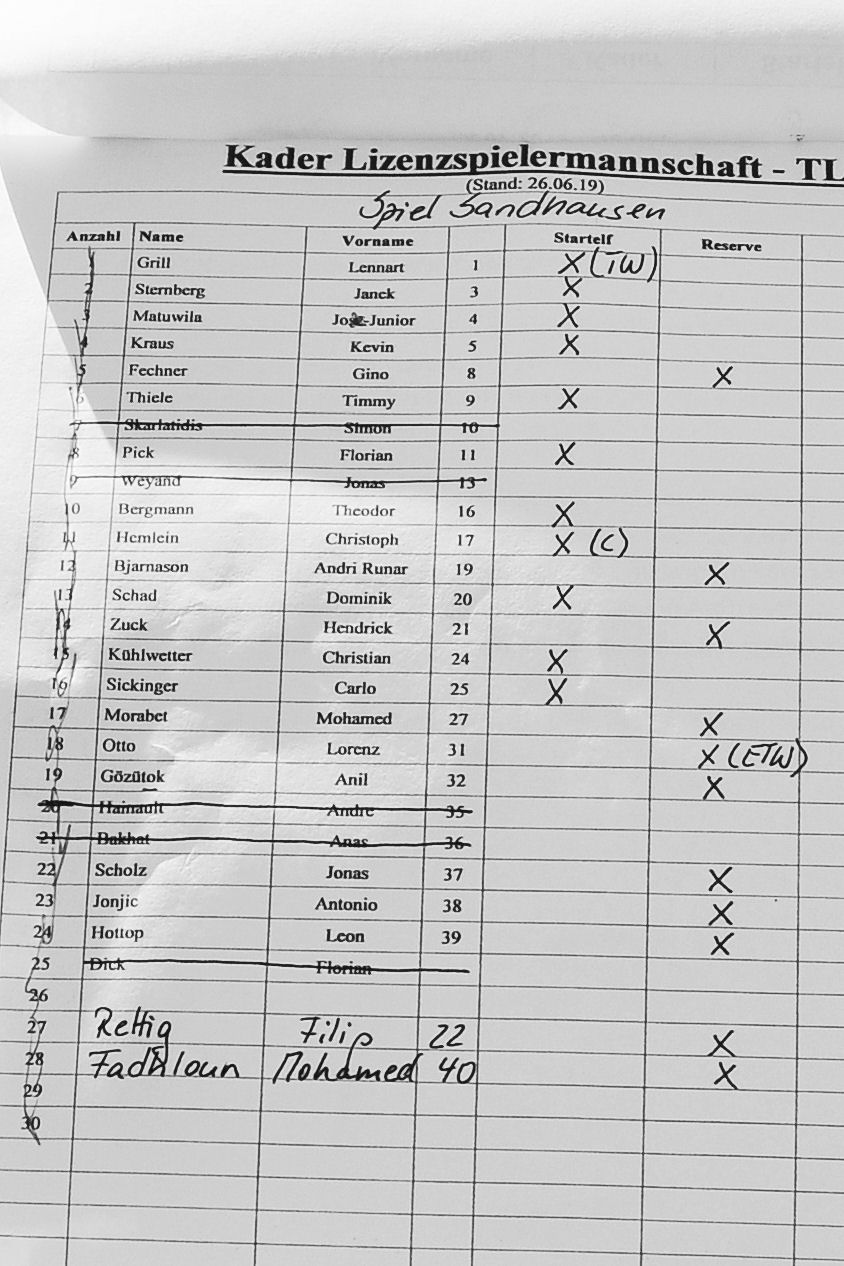 Kader Lizenzspielermannschaft - TL
(Stand: 26.06.19)
Spiel Sandhausen
Anzahl Name Vorname Startelf Reserve
1 Grill Lennart 1 X (TW)
2 Sternberg Janek 3 X
3 Matuwila Jo Junior 4 X
4 Kraus Kevin 5 X
5 Fechner Gino 8 X
6 Thiele Timmy 9 X
7 Skarlatidis Simon 10
8 Pick Florian 11 X
9 Weyand Jonas 13
10 Bergmann Theodor 16 X
11 Hemlein Christoph 17 X (C)
12 Bjarnason Andri Runar 19 X
13 Schad Dominik 20 X
14 Zuck Hendrick 21 X
15 Kühlwetter Christian 24 X
16 Sickinger Carlo 25 X
17 Morabet Mohamed 27 X
18 Otto Lorenz 31 X (ETW)
19 Gözütok Anil 32 X
20 Hainault Andre 35
21 Bakhat Anas 36
22 Scholz Jonas 37 X
23 Jonjic Antonio 38 X
24 Hottop Leon 39 X
25 Dick Florian
26
27 Rettig Filip 22 X
28 Fadhloun Mohamed 40 X
29
30